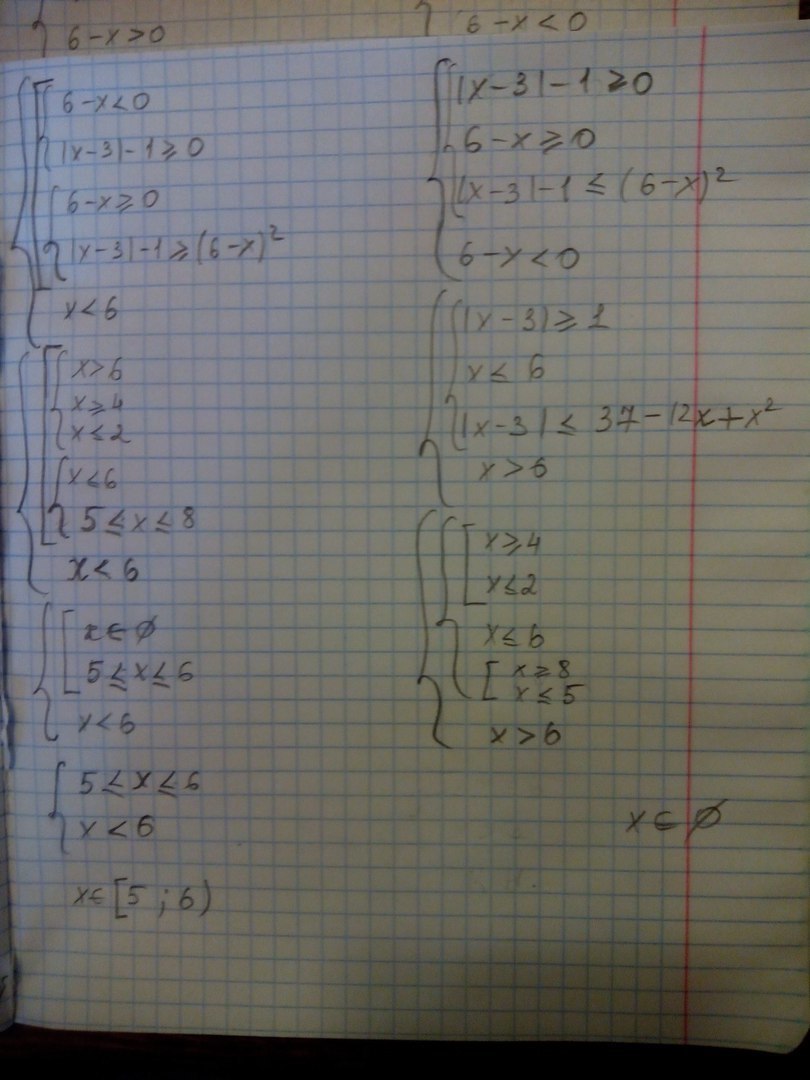 6-x>0
6-x<0
6-x<0
|x-3|-1≥0
6-x≥0
|x-3|-1≥(6-x)²
x<6
x>6
x≥4
x≤2
x<6
5≤x≤8
x<6
x∈∅
5≤x≤6
x<6
5≤x≤6
x<6
x∈[5;6)
|x-3|-1≥0
6-x≥0
|x-3|-1≤(6-x)²
6-x<0
|x-3|≥1
x≤6
|x-3|≤37-12x+x²
x>6
x≥4
x≤2
x≤6
x≥8
x≤5
x>6
x∈∅